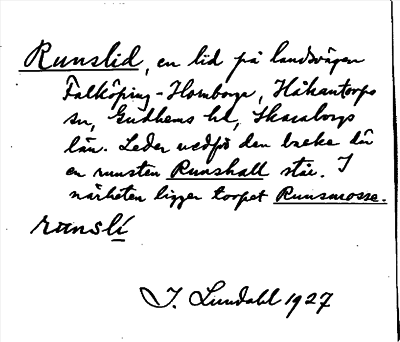 Runslid, en lid på landsvägen
Falköping-Hornborga, Håkantorps
sn, Gudhems hd, Skaraborgs
län. Leder uppför den backe där
en runsten Runshall står. I
närheten ligger torpet Runsmosse.
runslí
J. Lundahl 1927